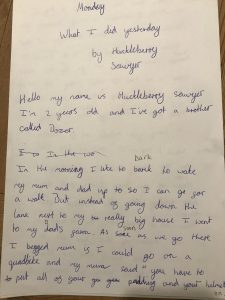 Monday
What I did yesterday
by Huckleberry
Sawyer
Hello my name is Huckleberry Sawyer
I'm 2 years old and I've got a brother
called Dozer.
I In the
Dark
In the morning I like to bark to wake
my mum and dad up to so I can go for
a walk. But instead of going down the
lane next to my really big house I went
to my dad's farm. As soon as we go there
I begged mum if I could go on a
quadbike and my mum said " you have to
put all of your padding and your helmet